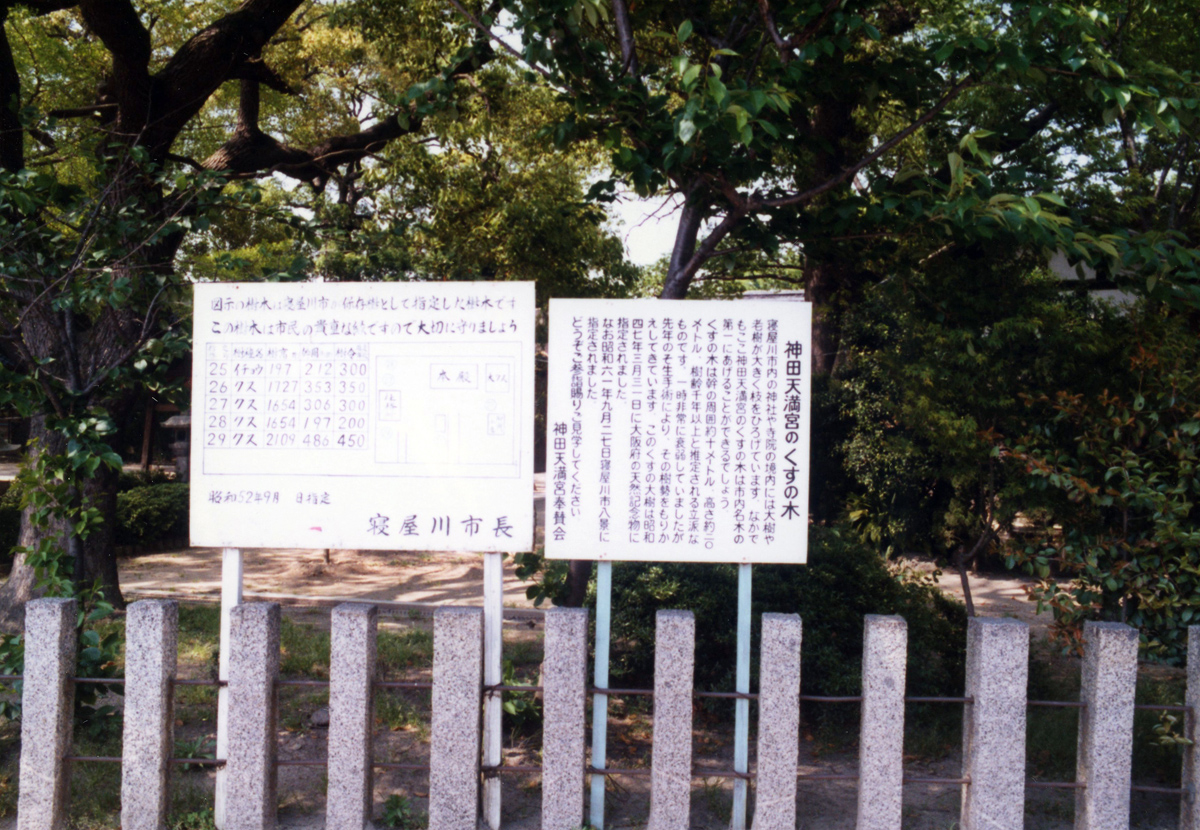 図示の樹木は寝屋川市が保存樹として指定した樹木です
この樹木は市民の貴重な緑ですので大切に守りましょう
25 イチョウ 197 212 300
26 クス 1727 353 350
27 クス 1654 306 300
28 クス 1654 197 200
29 クス 2109 486 450
本殿
昭和52年9月 日指定
寝屋川市長
神田天満宮のくすの木
寝屋川市内の神社や寺院の境内には大樹や
老樹が大きく枝をひろげています なかで
もここ神田天満宮のくすの木は市内名木の
第一にあげることができるでしょう
くすの木は幹の周囲約十メートル 高さ約二〇
メートル 樹齢千年以上と推定される立派な
ものです。一時非常に衰弱していましたが
先年のそ生手術により、その樹勢をもりか
えしてきています このくすの大樹は昭和
四七年三月三一日に大阪府の天然記念物に
指定されました
なお昭和六一年九月二七日寝屋川市八景に
指定されました
どうぞご参詣賜りご見学してください
神田天満宮奉賛会